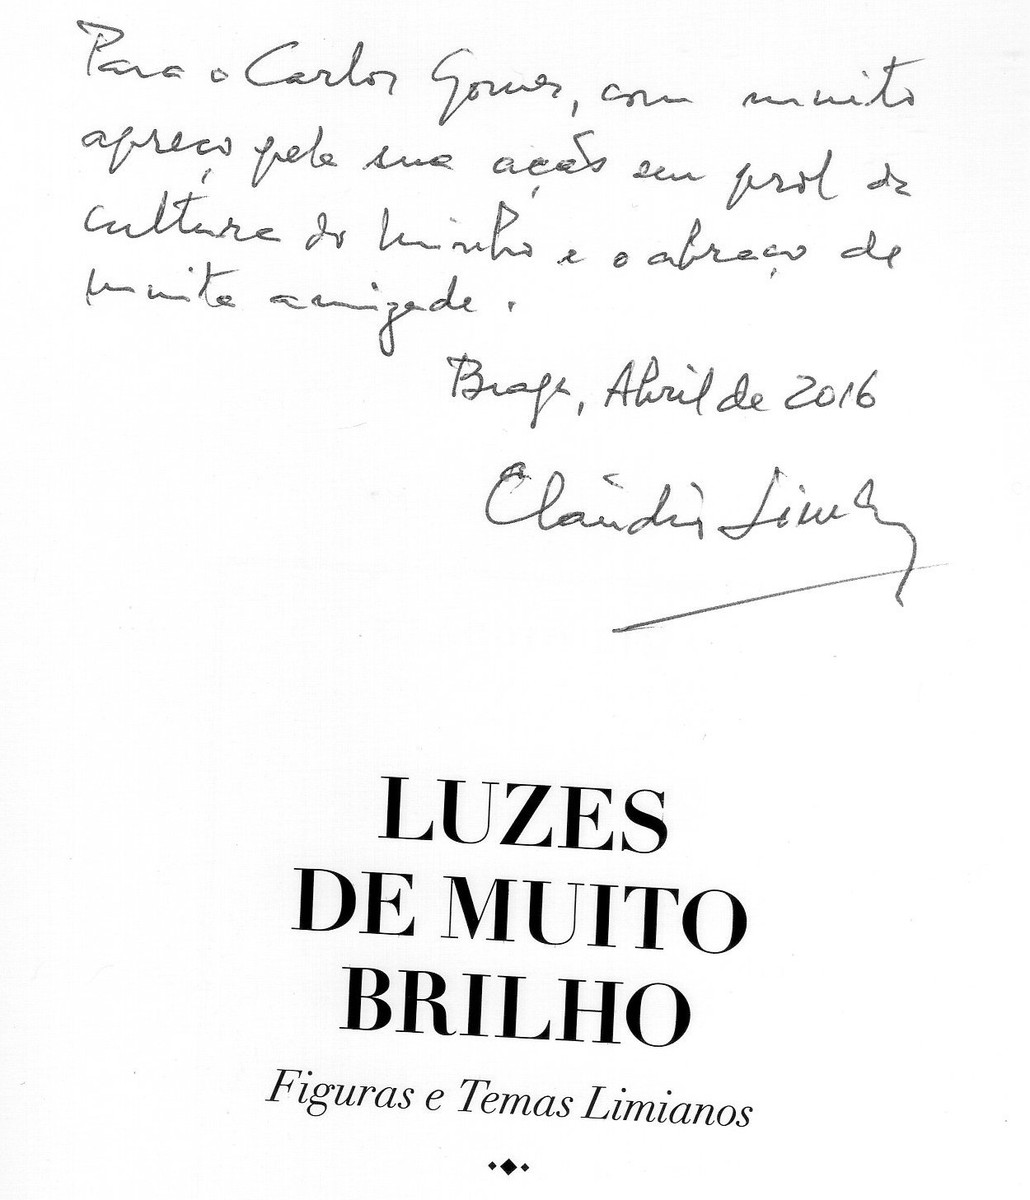 Para o Carlos Gomes, com muito
apreço pela sua ação em prol da
cultura do Minho e o abraço de
muita amizade.
Braga, Abril de 2016
Cláudio Lima
LUZES
DE MUITO
BRILHO
Figuras e Temas Limianos